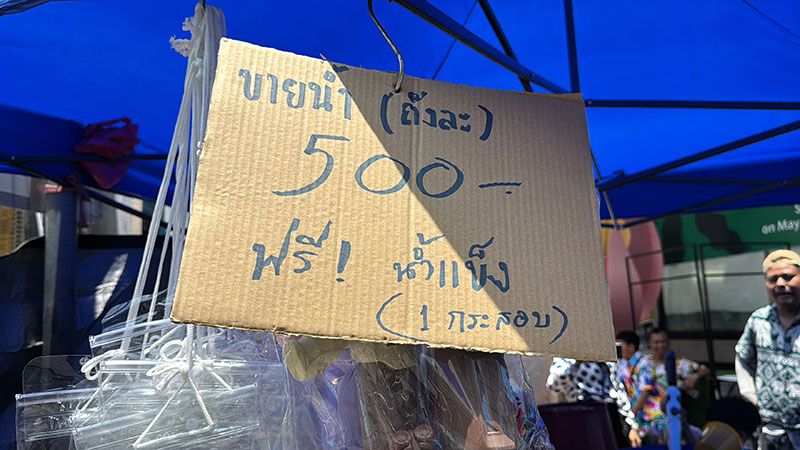 ขายน้ำ (ถังละ)
500.-
ฟรี! น้ำแข็ง
(1 กระสอบ)
on May